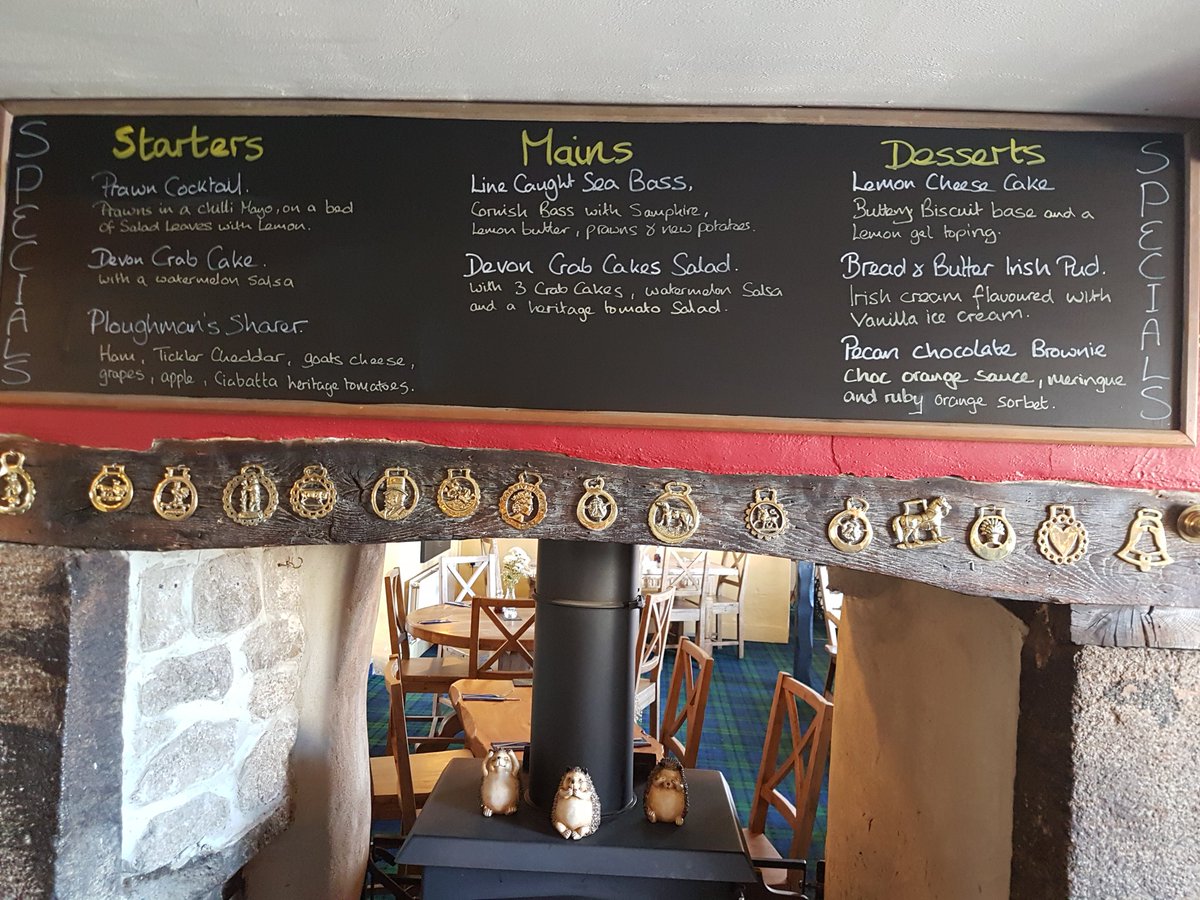 SPECIALS
Starters
Prawn Cocktail.
Prawns in a chilli Mayo, on a bed
of Salad Leaves with Lemon.
Devon Crab Cake.
with a watermelon Salsa
Ploughman's Sharer.
Ham, Tickler Cheddar, goats cheese,
grapes, apple, Ciabatta heritage tomatoes.
Mains
Line Caught Sea Bass,
Cornish Bass with Samphire,
Lemon butter, prawns & new potatoes.
Devon Crab Cakes Salad.
with 3 Crab Cakes, watermelon Salsa
and a heritage tomato Salad.
Desserts
Lemon Cheese Cake
Buttery Biscuit base and a
Lemon gel toping.
Bread & Butter Irish Pud.
Irish cream flavoured with
Vanilla ice cream.
Pecan chocolate Brownie
Choc orange sauce, meringue
and ruby orange sorbet.
SPECIALS